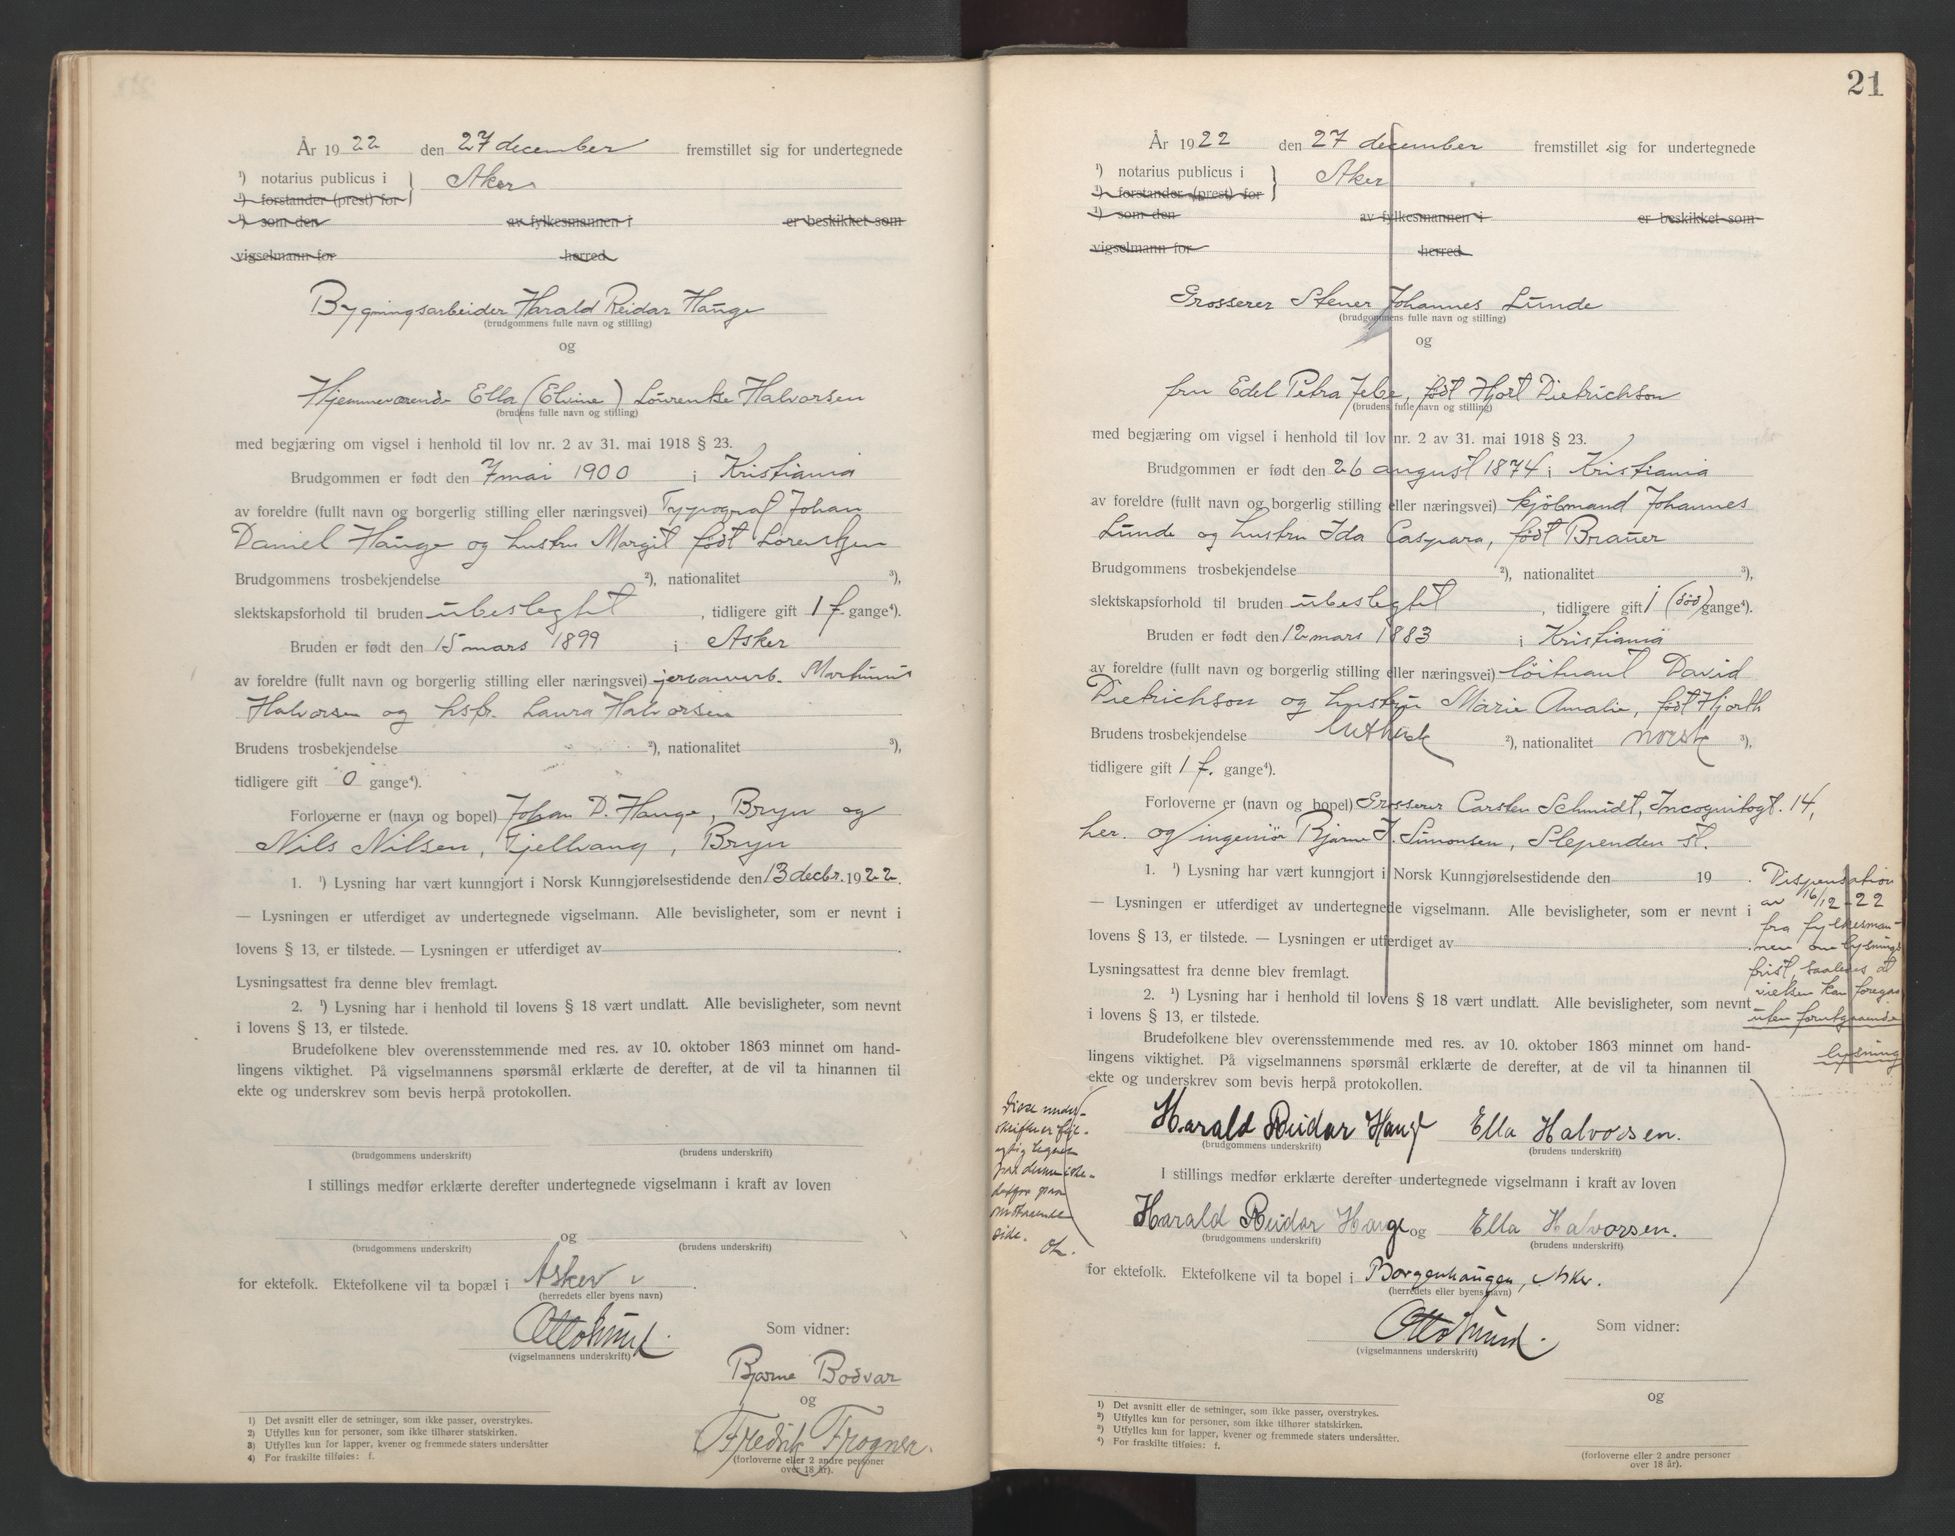 År 1922 den 27 december fremstillet sig for undertegnede
¹) notarius publicus i } Aker
¹) forstander (prest) for
¹) som den av fylkesmannen i er beskikket som
vigselmann for herred
Bygningsarbeider Harald Reidar Hauge
(brudgommens fulle navn og stilling)
og
Hjemmeværende Ella (Elvine) Lourentse Halvorsen
(brudens fulle navn og stilling)
med begjæring om vigsel i henhold til lov nr. 2 av 31. mai 1918 § 23.
Brudgommen er født den 7 mai 1900 i Kristiania
av foreldre (fullt navn og borgerlig stilling eller næringsvei) Typograf Johan
Daniel Hauge og hustru Margit født Lorentzen
Brudgommens trosbekjendelse ²), nationalitet ³),
slektskapsforhold til bruden ubeslegtet, tidligere gift 1 f. gange⁴).
Bruden er født den 15 mars 1899 i Asker
av foreldre (fullt navn og borgerlig stilling eller næringsvei) jernvarb. Martinius
Halvorsen og hsfr. Laura Halvorsen
Brudens trosbekjendelse ²), nationalitet ³),
tidligere gift 0 gange⁴).
Forloverne er (navn og bopel) Johan D. Hauge, Bryn og
Nils Nilsen, Fjellvang, Bryn
1. ¹) Lysning har vært kunngjort i Norsk Kunngjørelsestidende den 13 decbr. 1922.
— Lysningen er utferdiget av undertegnede vigselmann. Alle bevisligheter, som er nevnt i
lovens § 13, er tilstede. — Lysningen er utferdiget av .
Lysningsattest fra denne blev fremlagt.
2. ¹) Lysning har i henhold til lovens § 18 vært undlatt. Alle bevisligheter, som nevnt
i lovens § 13, er tilstede.
Brudefolkene blev overensstemmende med res. av 10. oktober 1863 minnet om hand-
lingens viktighet. På vigselmannens spørsmål erklærte de derefter, at de vil ta hinannen til
ekte og underskrev som bevis herpå protokollen.
(brudgommens underskrift) (brudens underskrift)
I stillings medfør erklærte derefter undertegnede vigselmann i kraft av loven
og
(brudgommens underskrift) (brudens underskrift)
for ektefolk. Ektefolkene vil ta bopæl i Asker.
(herredets eller byens navn)
Som vidner:
(vigselmannens underskrift)
Bjarne Bodvar
og
Fredrik Frogner.
(forloverne eller 2 andre personer
over 18 år).
1) Det avsnitt eller de setninger, som ikke passer, overstrykes.
2) Utfylles kun for personer, som ikke tilhører statskirken.
3) Utfylles kun for lapper, kvener og fremmede staters undersåtter
4) For fraskilte tilføies: f.
21
År 1922 den 27 december fremstillet sig for undertegnede
¹) notarius publicus i } Aker
¹) forstander (prest) for
¹) som den av fylkesmannen i er beskikket som
vigselmann for herred
Grosserer Stener Johannes Lunde
(brudgommens fulle navn og stilling)
og
fru Edel Petra Jebe, født Hjort Dietrichson
(brudens fulle navn og stilling)
med begjæring om vigsel i henhold til lov nr. 2 av 31. mai 1918 § 23.
Brudgommen er født den 26 august 1874 i Kristiania
av foreldre (fullt navn og borgerlig stilling eller næringsvei) kjøbmand Johannes
Lunde og hustru Ida Caspara, født Brauer
Brudgommens trosbekjendelse ²), nationalitet ³),
slektskapsforhold til bruden ubeslegtet, tidligere gift 1 (død) gange⁴).
Bruden er født den 12 mars 1883 i Kristiania
av foreldre (fullt navn og borgerlig stilling eller næringsvei) løitnant David
Dietrichson og hustru Marie Amalie, født Hjorth
Brudens trosbekjendelse luthersk ²), nationalitet norsk ³),
tidligere gift 1 f. gange⁴).
Forloverne er (navn og bopel) Grosserer Carsten Schmidt, Incognitogt. 14,
her. og ingeniør Bjarne J. Simonsen, Slependen st.
1. ¹) Lysning har vært kunngjort i Norsk Kunngjørelsestidende den 19 .
— Lysningen er utferdiget av undertegnede vigselmann. Alle bevisligheter, som er nevnt i
lovens § 13, er tilstede. — Lysningen er utferdiget av .
Lysningsattest fra denne blev fremlagt.
2. ¹) Lysning har i henhold til lovens § 18 vært undlatt. Alle bevisligheter, som nevnt
i lovens § 13, er tilstede.
Dispensation
av 16/12-22
fra fylkesman-
nen om lysnings
frist, saaledes at
vielsen kan foregaa
uten forutgaaende
lysning
Brudefolkene blev overensstemmende med res. av 10. oktober 1863 minnet om hand-
lingens viktighet. På vigselmannens spørsmål erklærte de derefter, at de vil ta hinannen til
ekte og underskrev som bevis herpå protokollen.
Disse under-
skrifter er feil-
agtig tegnet
paa denne side-
side.
Harald Reidar Hauge Ella Halvorsen.
(brudgommens underskrift) (brudens underskrift)
I stillings medfør erklærte derefter undertegnede vigselmann i kraft av loven
Harald Reidar Hauge og Ella Halvorsen.
(brudgommens underskrift) (brudens underskrift)
for ektefolk. Ektefolkene vil ta bopel i Borgenhaugen, Asker.
(herredets eller byens navn)
Som vidner:
(vigselmannens underskrift)
og
(forloverne eller 2 andre personer
over 18 år).
1) Det avsnitt eller de setninger, som ikke passer, overstrykes.
2) Utfylles kun for personer, som ikke tilhører statskirken.
3) Utfylles kun for lapper, kvener og fremmede staters undersåtter.
4) For fraskilte tilføies: f.